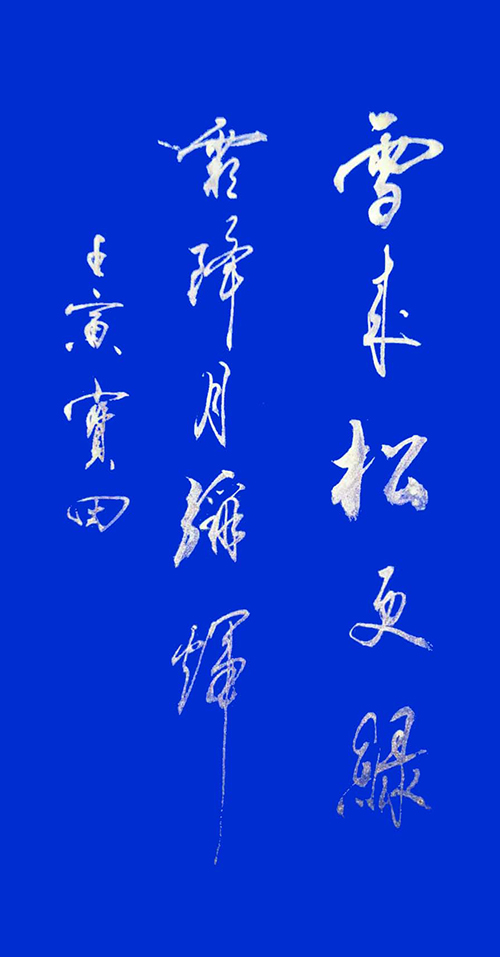 雪来松更綠
霜降月彌輝
壬寅寶田